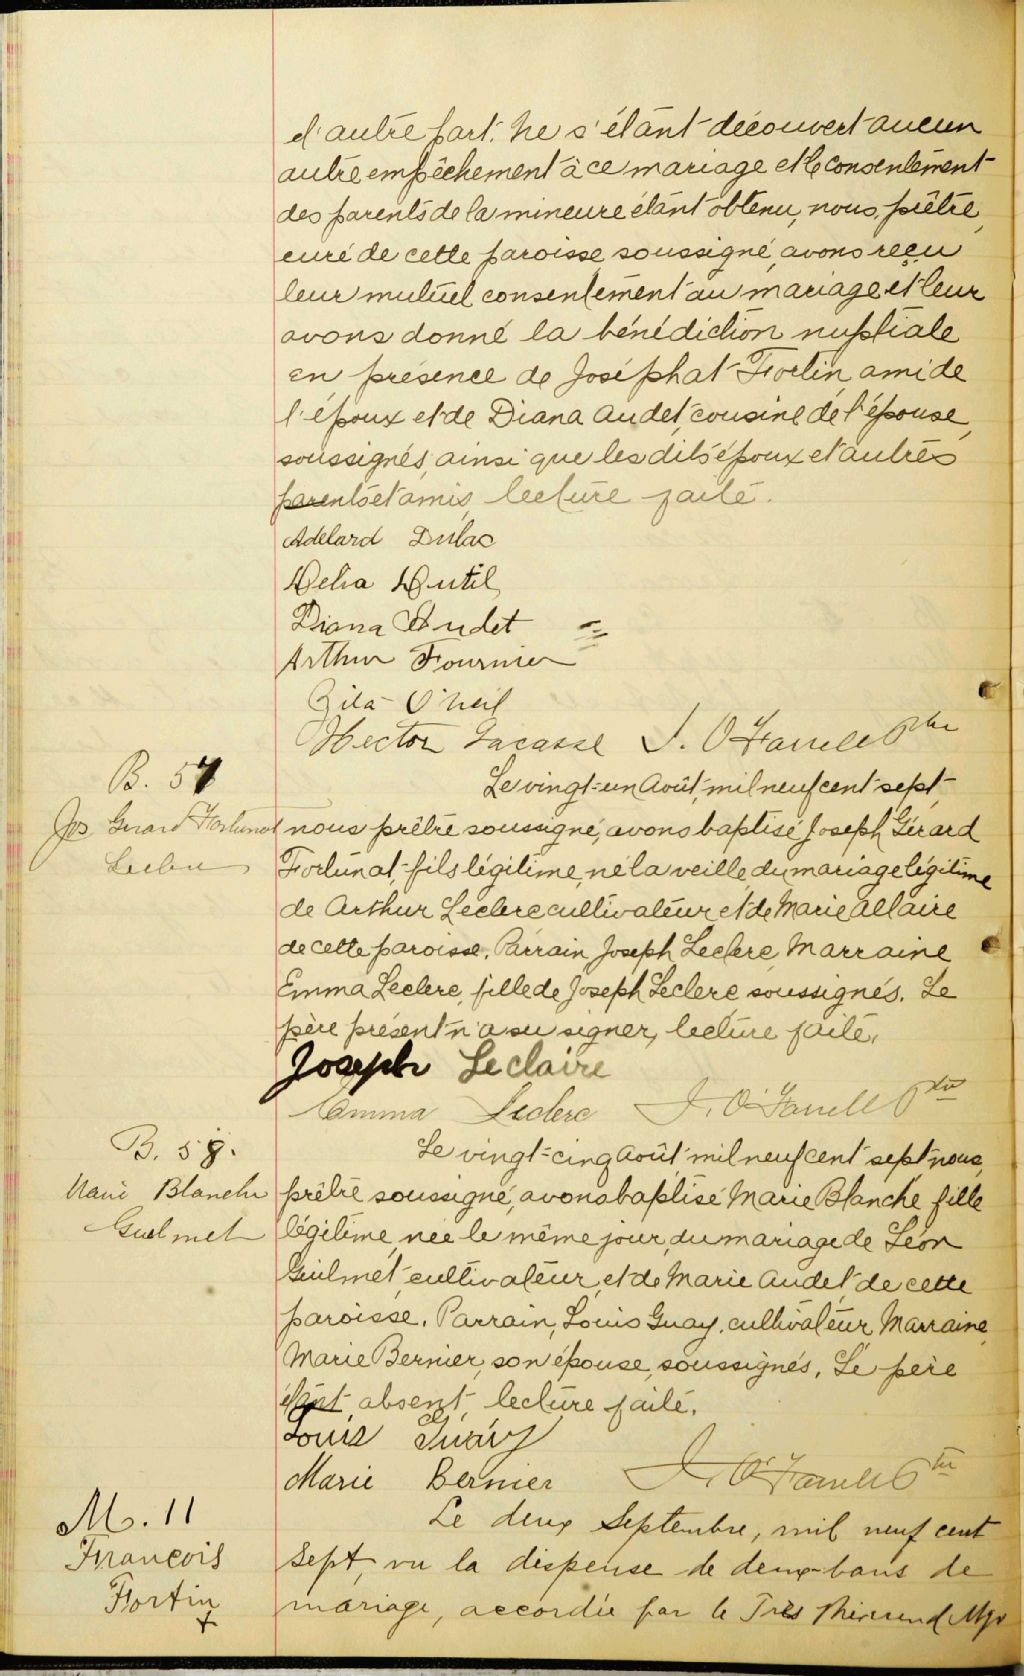 d'autre part. Ne s'étant découvert aucun
autre empêchement à ce mariage et le consentement
des parents de la mineure étant obtenu, nous, prêtre,
curé de cette paroisse soussigné, avons reçu
leur mutuel consentement au mariage et leur
avons donné la bénédiction nuptiale
en présence de Joséphat Fortin, ami de
l'époux et de Diana Audet, cousine de l'épouse,
soussignés, ainsi que les dits époux et autres
parents et amis, lecture faite.
Adelard Dulac
Délia Dutil
Diana Audet
Arthur Fournier
Zila O'Neil
Hector Lacasse J. O'Farrell Ptre
B. 57
Le vingt-un Août, mil neuf cent sept,
Jos Gerard Fortunat
nous prêtre soussigné, avons baptisé Joseph Gérard
Leclerc
Fortunat, fils légitime, né la veille, du mariage légitime
de Arthur Leclerc cultivateur et de Marie Allaire
de cette paroisse. Parrain Joseph Leclerc, Marraine
Emma Leclerc, fille de Joseph Leclerc, soussignés. Le
père présent n'a su signer, lecture faite.
Joseph Leclaire
Emma Leclerc J. O'Farrell Ptre
B. 58.
Le vingt-cinq Août, mil neuf cent sept, nous,
Marie Blanche
prêtre soussigné, avons baptisé Marie Blanche, fille
Guilmet
légitime, née le même jour, du mariage de Léon
Guilmet, cultivateur, et de Marie Audet, de cette
paroisse. Parrain, Louis Guay, cultivateur, Marraine,
Marie Bernier, son épouse, soussignés. Le père
étant absent, lecture faite.
Louis Guay
Marie Bernier J. O'Farrell Ptre
M. 11
Le deux Septembre, mil neuf cent
François
sept, vu la dispense de deux bans de
Fortin
+
mariage, accordée par le Très Révérend Mgr